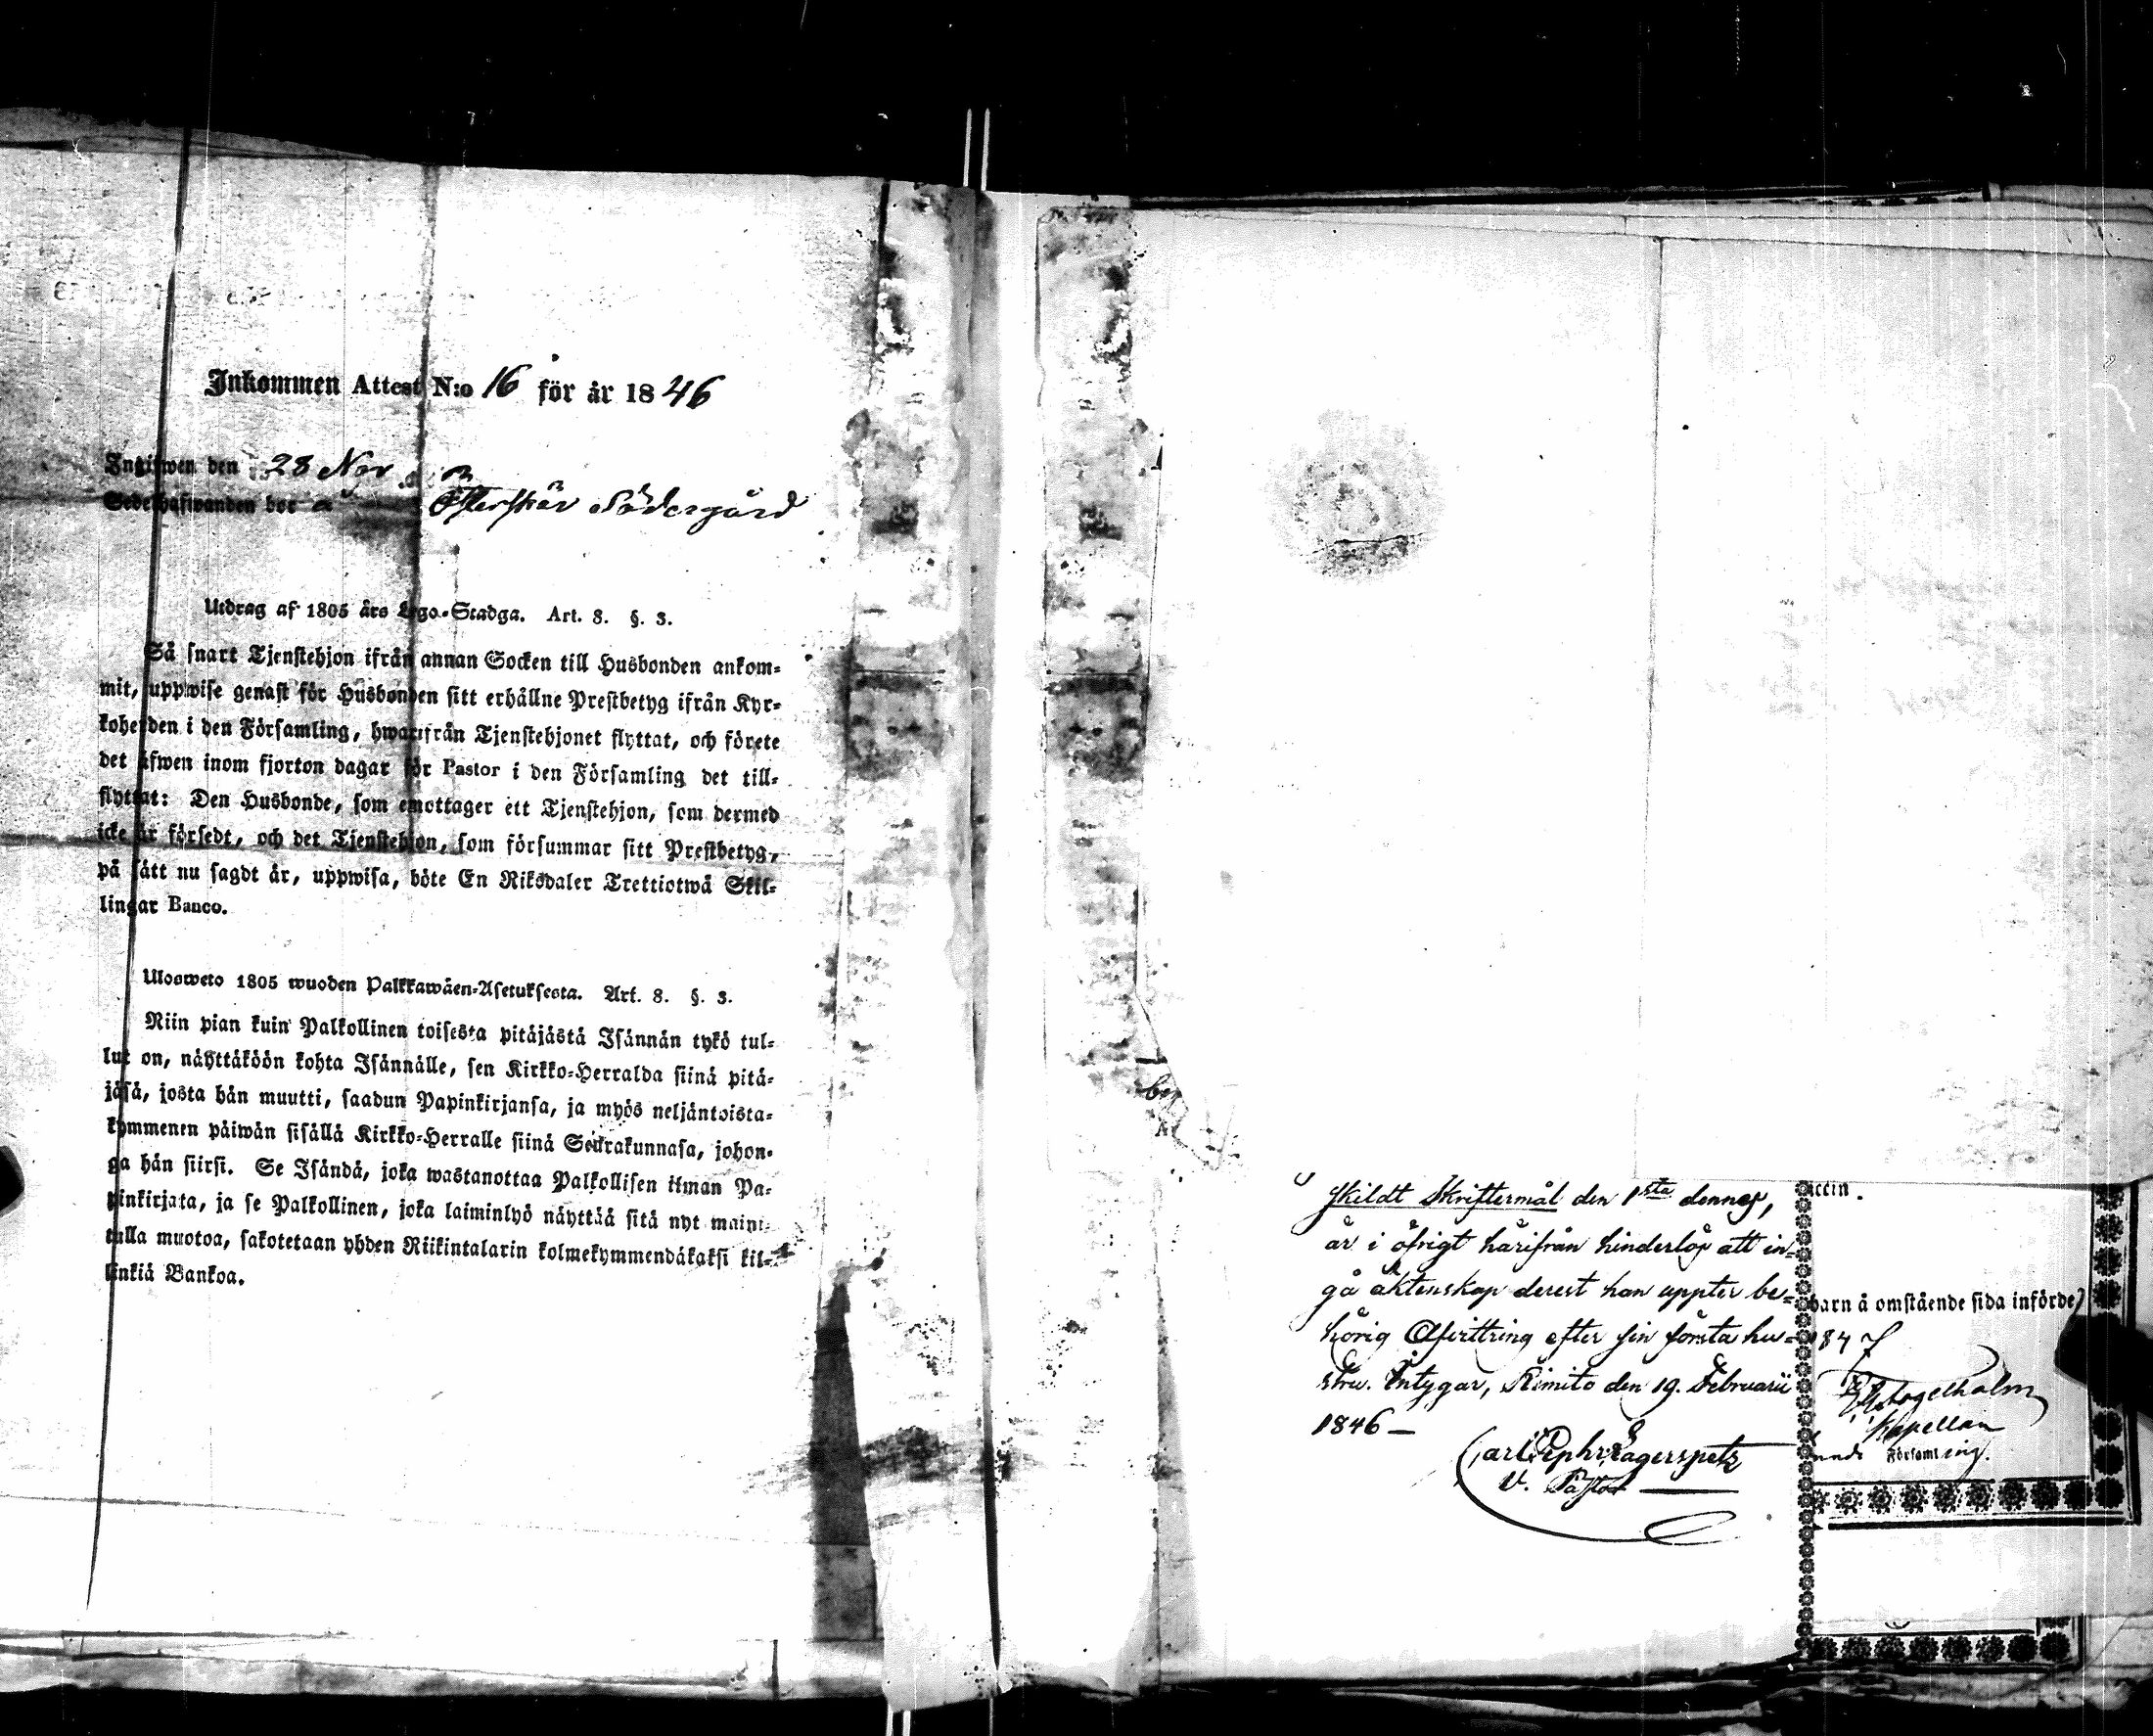 Inkommen Attest N:o 16 för år 1846
Ingifwen den 28 Nov
Sedelhafwanden bor å Österskär Södergård
Utdrag af 1805 års Lego-Stadga. Art. 8. §. 3.
Så snart Tjenstehjon ifrån annan Socken till Husbonden ankom-
mit, uppwise genast för Husbonden sitt erhållne Prestbetyg ifrån Kyr-
koherden i den Församling, hwarifrån Tjenstehjonet flyttat, och förete
det äfwen inom fjorton dagar för Pastor i den Församling det till-
flyttat: Den Husbonde, som emottager ett Tjenstehjon, som dermed
icke är försedt, och det Tjenstehjon, som försummar sitt Prestbetyg,
på sätt nu sagdt är, uppwisa, böte En Riksdaler Trettiotwå Skil-
lingar Banco.
Ulosweto 1805 wuoden Palkkawäen-Asetuksesta. Art. 8. §. 3.
Niin pian kuin Palkollinen toisesta pitäjästä Isännän tykö tul-
lut on, näyttäköön kohta Isännälle, sen Kirkko-Herralda siinä pitä-
jäsä, josta hän muutti, saadun Papinkirjansa, ja myös neljäntoista-
kymmenen päiwän sisällä Kirkko-Herralle siinä Seurakunnasa, johon-
ga hän siirsi. Se Isändä, joka wastanottaa Palkollisen ilman Pa-
pinkirjata, ja se Palkollinen, joka laiminlyö näyttää sitä nyt maini-
tulla muotoa, sakotetaan yhden Riikintalarin kolmekymmendäkaksi kil-
linkiä Bankoa.
skildt Skriftermål den 1sta dennes,
är i öfrigt härifrån hinderlös att in-
gå äktenskap derest han uppter be-
hörig Afvittring efter sin första hu-
stru. Intygar, Kimito den 19. Februarii
1846 –
Carl Ephr. Lagerspetz
V. Pastor
barn å omstående sida införde)
1847
Kapellan
Församling.